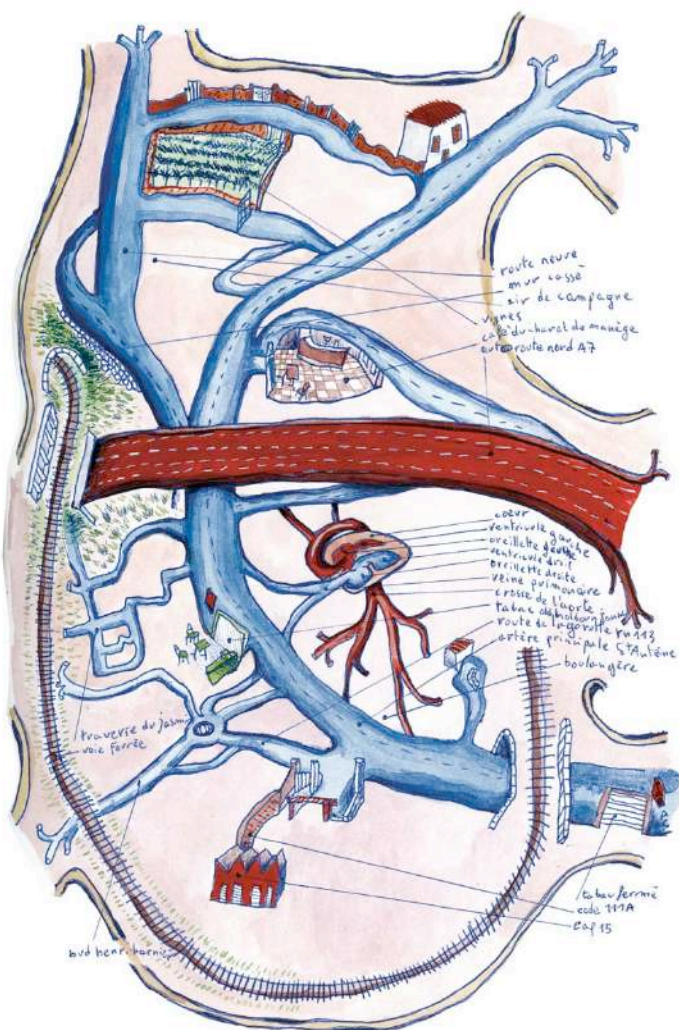 route neuve
mur cassé
air de campagne
vignes
café du cheval de manège
autoroute nord A7
coeur
ventricule gauche
oreillette gauche
ventricule droit
oreillette droite
veine pulmonaire
crosse de l'aorte
tabac
route de la
rn 113
artère principale St Antoine
boulangère
traverse du jasmin
voie ferrée
tabac fermé
code 111A
cap 15
bvd henri barnier